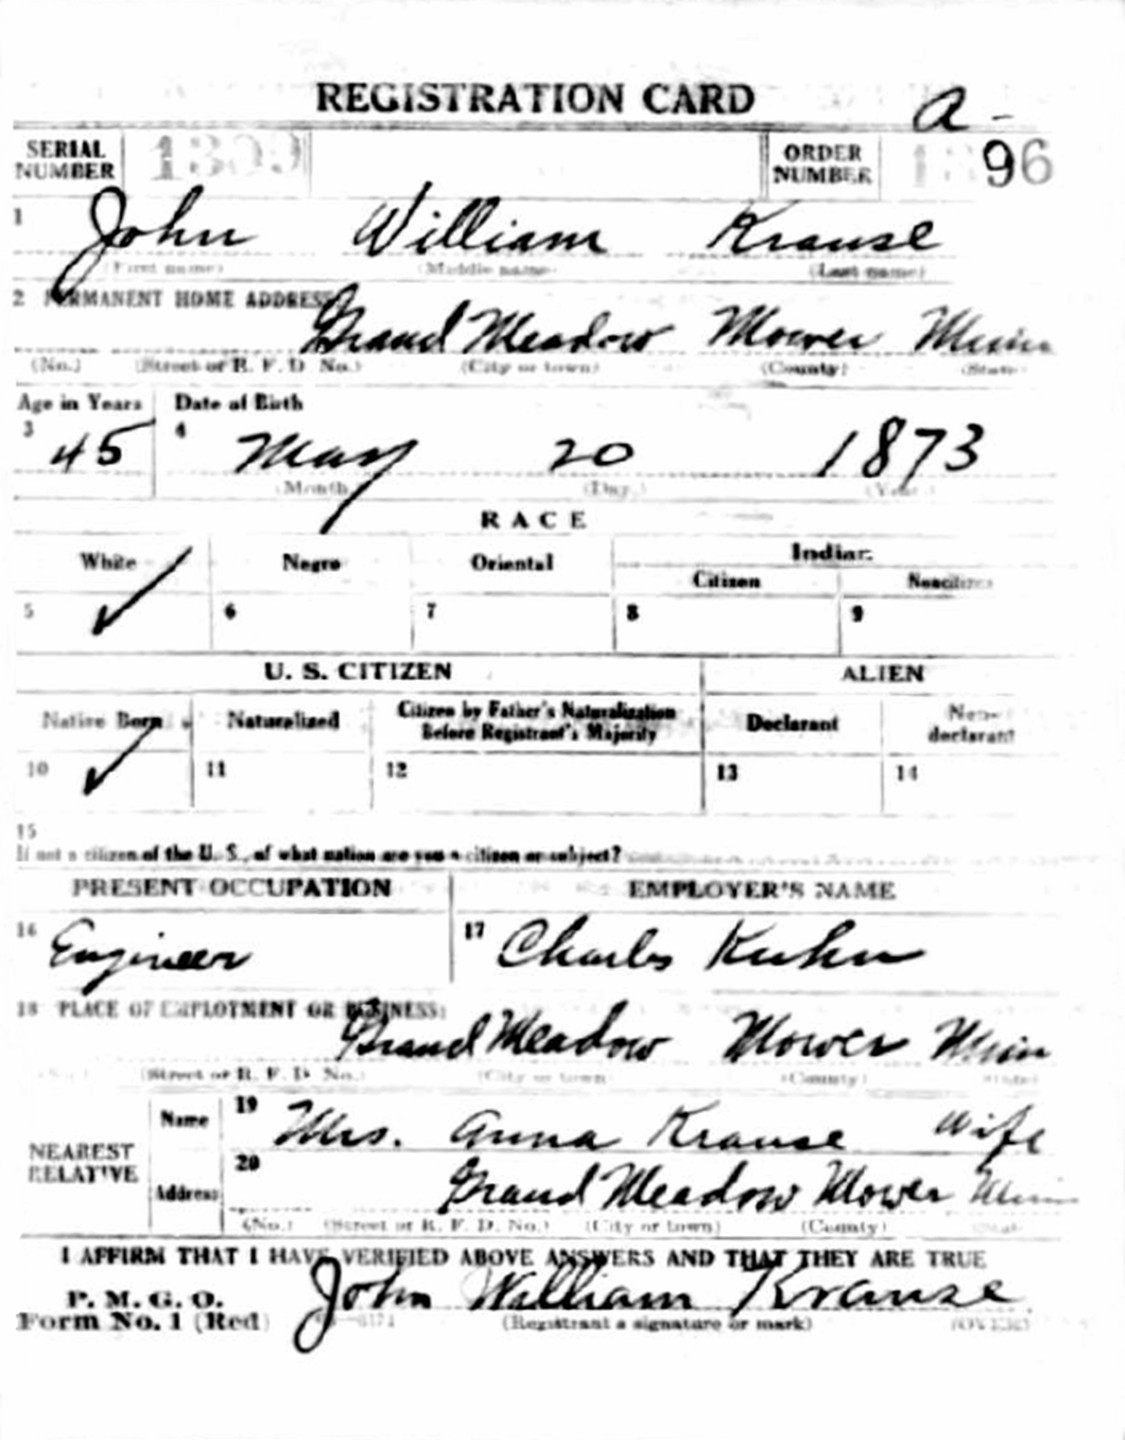 REGISTRATION CARD
A-
SERIAL NUMBER 1399 ORDER NUMBER 96
1 John William Krause
(First name) (Middle name) (Last name)
2 PERMANENT HOME ADDRESS
Grand Meadow Mower Minn
(No.) (Street or R. F. D. No.) (City or town) (County) (State)
Age in Years Date of Birth
3 45 4 May 20 1873
(Month) (Day) (Year)
RACE
White Negro Oriental Indian
Citizen Noncitizen
5 ✓ 6 7 8 9
U. S. CITIZEN ALIEN
Native Born Naturalized Citizen by Father's Naturalization Before Registrant's Majority Declarant Non-declarant
10 ✓ 11 12 13 14
15
If not a citizen of the U. S., of what nation are you a citizen or subject?
PRESENT OCCUPATION EMPLOYER'S NAME
16 Engineer 17 Charles Kuhn
18 PLACE OF EMPLOYMENT OR BUSINESS:
Grand Meadow Mower Minn
(No.) (Street or R. F. D. No.) (City or town) (County) (State)
NEAREST RELATIVE
Name 19 Mrs. Anna Krause Wife
Address 20 Grand Meadow Mower Minn
(No.) (Street or R. F. D. No.) (City or town) (County) (State)
I AFFIRM THAT I HAVE VERIFIED ABOVE ANSWERS AND THAT THEY ARE TRUE
P. M. G. O.
Form No. 1 (Red) John William Krause
(Registrant's signature or mark) (OVER)